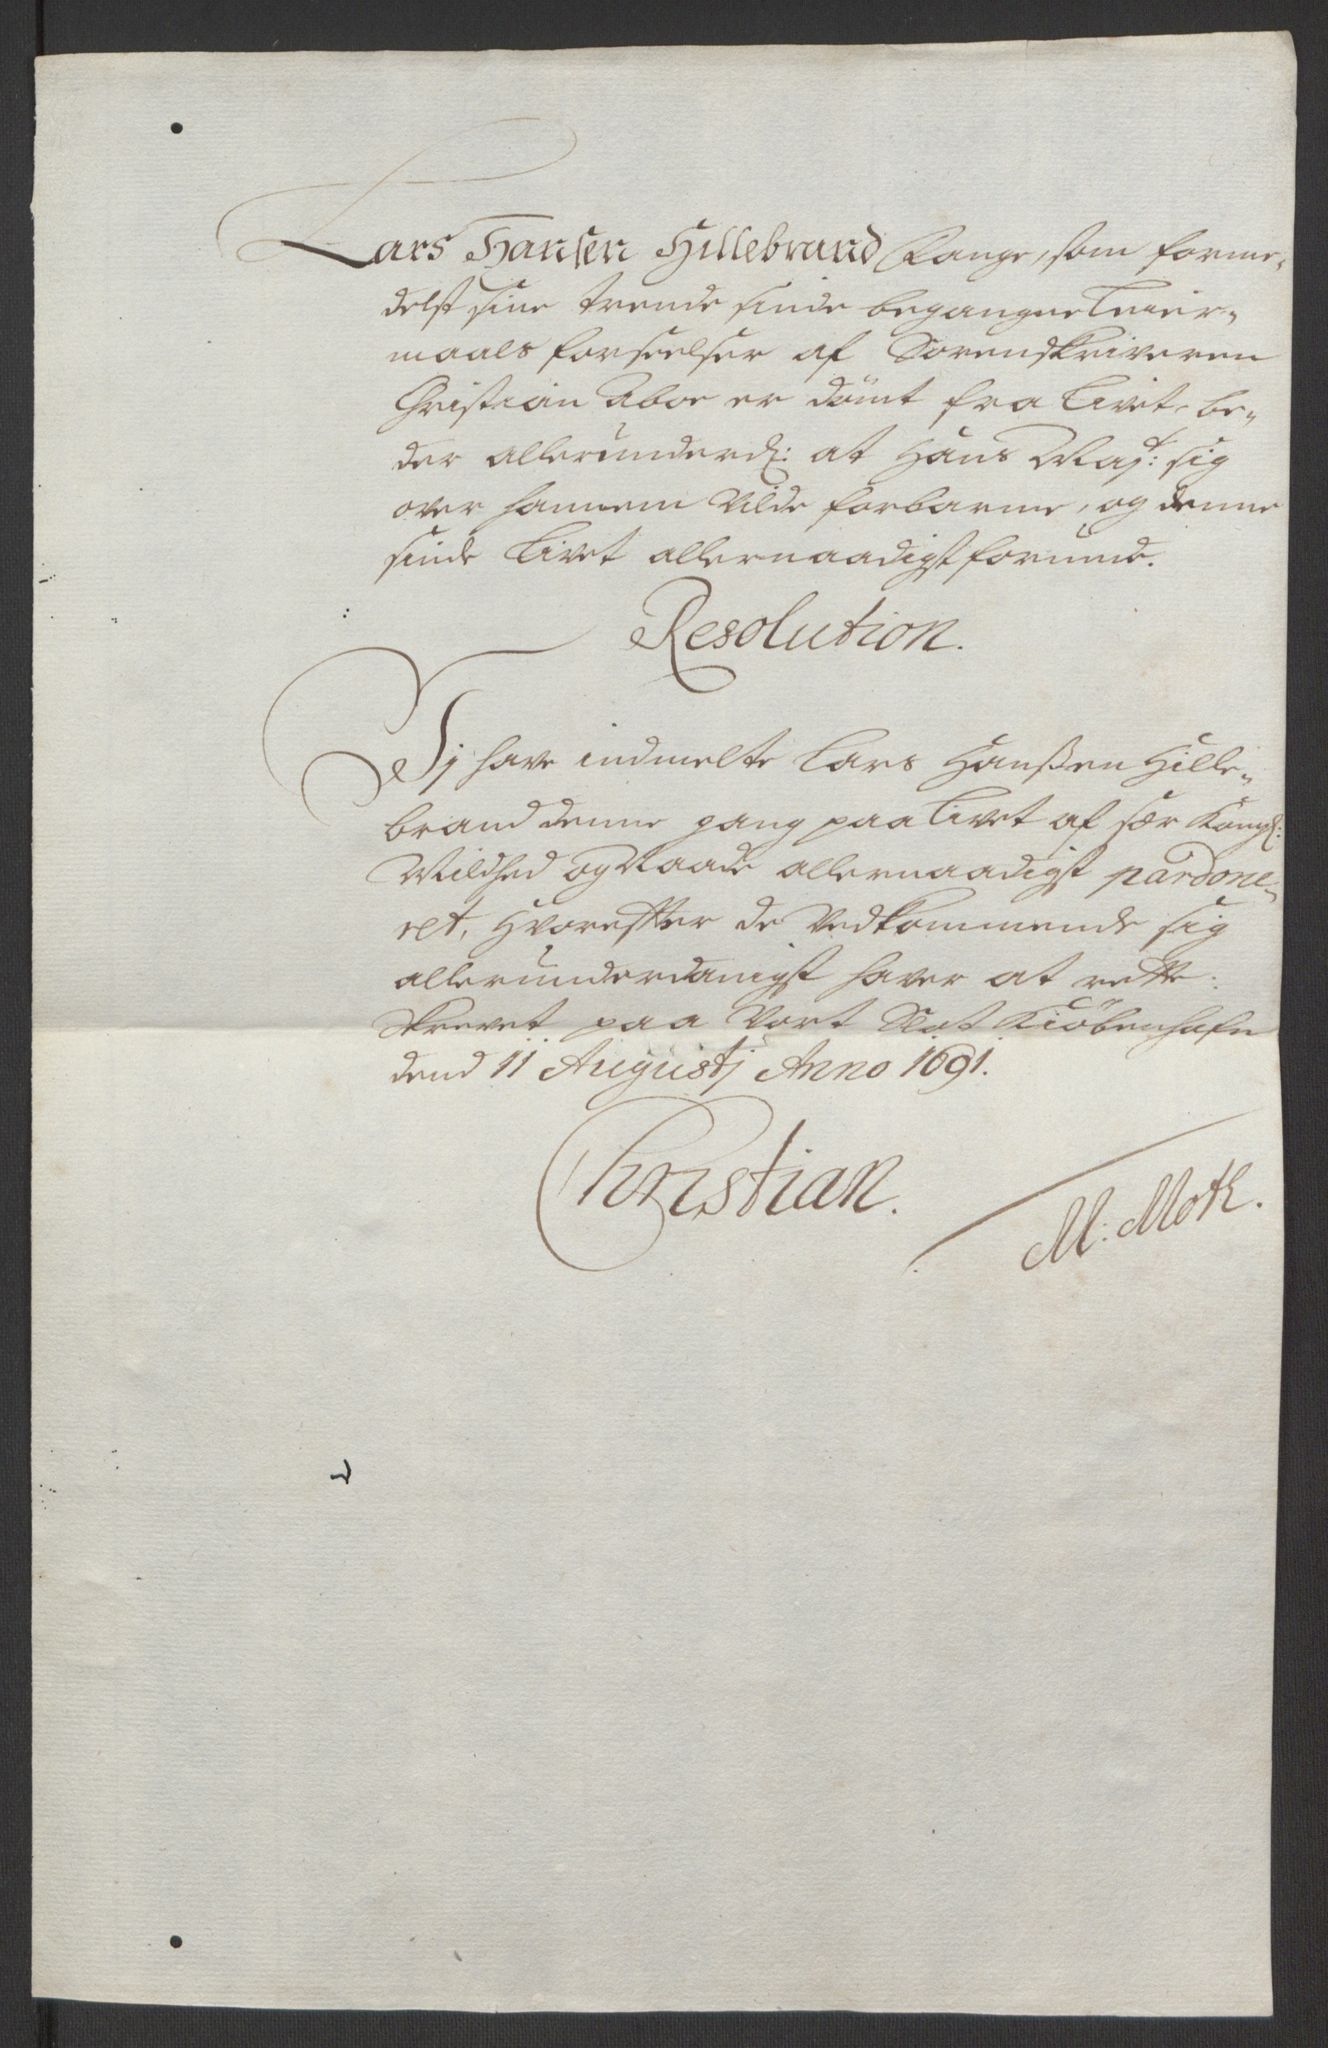 Lars Hansen Hillebrand Fange, som forme-
delst sine trende sinde begangne Leier-
maals forseelser af Sorenskriveren
Christian Aboe er dömt fra Livet, be-
der allerunderd: at Hans Maj:t sig
over hannem vilde forbarme, og denne
sinde Livet allernaadigst forunde.
Resolution.
Vj have indmelte Lars Hanßen Hille-
brand denne gang paa Livet af sær Kongl:
Mildhed og Naade allernaadigst pardone-
ret, Hvorefter de Vedkommende sig
allerunderdanigst haver at rette.
Skrevet paa Vort Slot Kiöbenhafn
dend 11 Augustj Anno 1691.
Christian.
M: Moth.